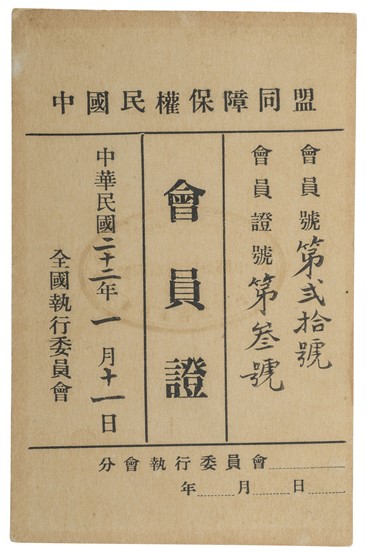 中國民權保障同盟
會員號第弍拾號
會員證號第叁號
會員證
中華民國二十二年一月十一日
全國執行委員會
分會執行委員會
年 月 日